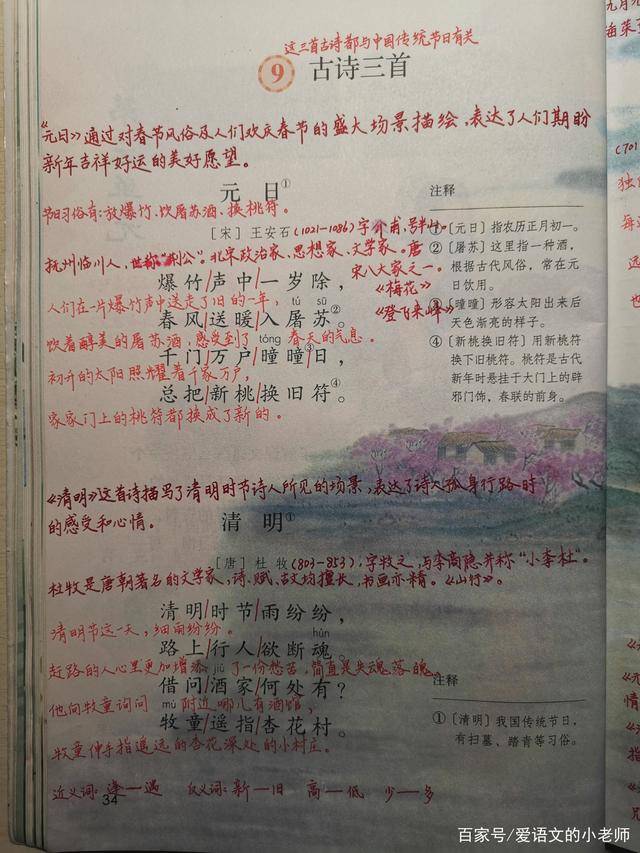 这三首古诗都与中国传统节日有关
9 古诗三首
《元日》通过对春节风俗及人们欢庆春节的盛大场景描绘,表达了人们期盼
新年吉祥好运的美好愿望。
元 日①
节日习俗有:放爆竹、饮屠苏酒、换桃符。
[宋] 王安石(1021-1086)字介甫,号半山。
抚州临川人,世称"荆公"。北宋政治家、思想家、文学家。唐
宋八大家之一。
《梅花》
《登飞来峰》
爆竹/声中/一岁除,
人们在一片爆竹声中送走了旧的一年,
tú sū
春风/送暖/入屠苏②。
饮着醇美的屠苏酒,感受到了春天的气息。
tóng
千门/万户/曈曈③日,
初升的太阳照耀着千家万户,
总把/新桃/换旧符④。
家家门上的桃符都换成了新的。
注释
① [元日] 指农历正月初一。
② [屠苏] 这里指一种酒,
根据古代风俗,常在元
日饮用。
③ [曈曈] 形容太阳出来后
天色渐亮的样子。
④ [新桃换旧符] 用新桃符
换下旧桃符。桃符是古代
新年时悬挂于大门上的辟
邪门饰,春联的前身。
《清明》这首诗描写了清明时节诗人所见的场景,表达了诗人孤身行路时
的感受和心情。
清 明①
[唐] 杜 牧(803-853),字牧之,与李商隐并称"小李杜"。
杜牧是唐朝著名的文学家,诗、赋、古文均擅长,书画亦精。《山行》。
清明/时节/雨纷纷,
清明节这一天,细雨纷纷。
hún
路上/行人/欲断魂。
赶路的人心里更加增添了一份愁苦,简直是失魂落魄。
jiǔ
借问/酒家/何处有?
他向牧童询问附近哪儿有酒馆,
mù
牧童/遥指/杏花村。
牧童伸手指遥远的杏花深处的小村庄。
注释
① [清明] 我国传统节日,
有扫墓、踏青等习俗。
近义词:逢—遇 反义词:新—旧 高—低 少—多
34
百家号/爱语文的小老师